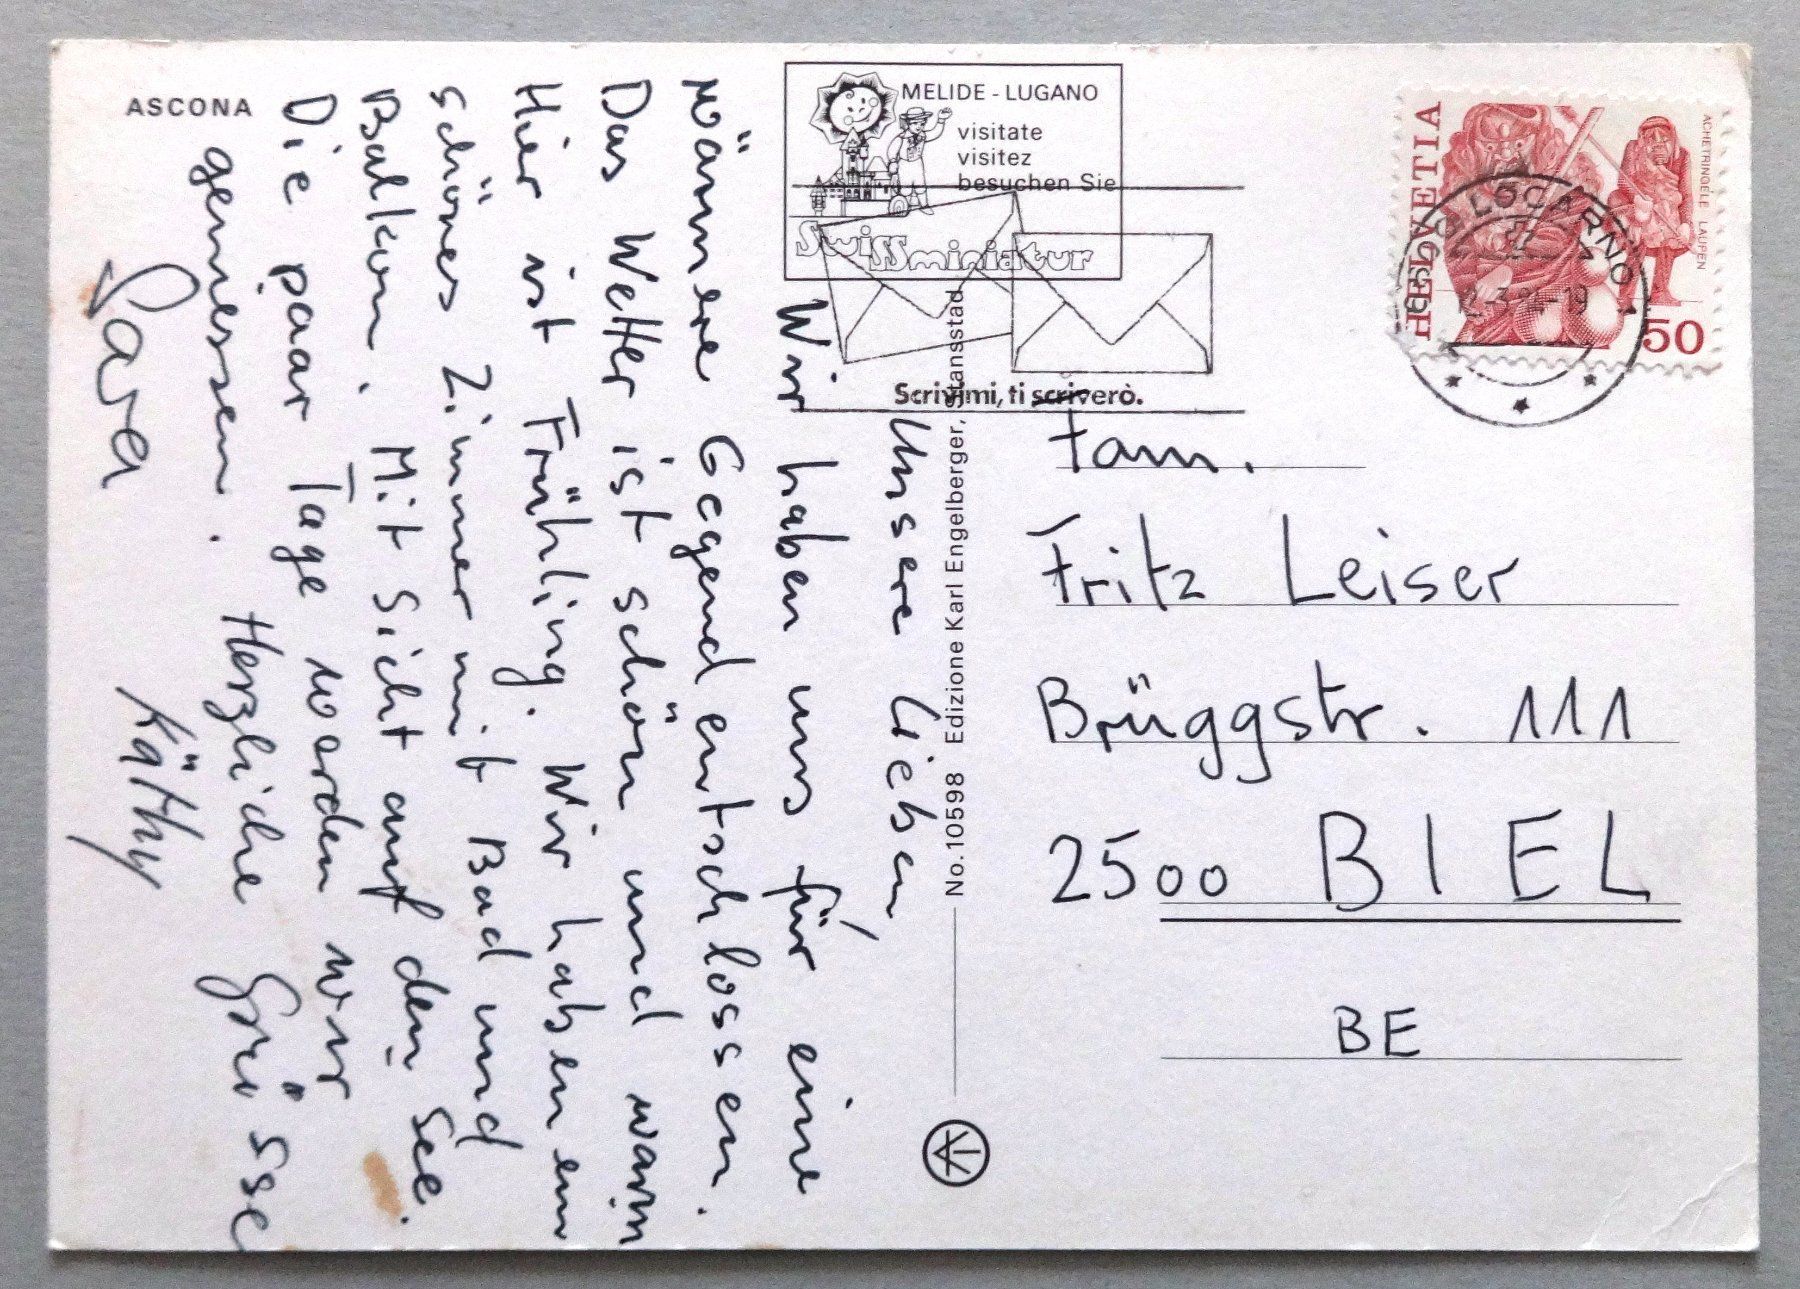 ASCONA
Unsere lieben
Wir haben uns für eine
wärmere Gegend entschlossen.
Das Wetter ist schön und warm
Hier ist Frühling. Wir haben ein
schönes Zimmer mit Bad und
Balkon. Mit Sicht auf den See.
Die paar Tage werden wir
geniessen. Herzliche Grüsse
Para Käthy
No. 10598 Edizione Karl Engelberger, Stansstad
MELIDE - LUGANO
visitate
visitez
besuchen Sie
Swissminiatur
Scrivimi, ti scriverò.
HELVETIA
ACHETRINGELE LAUPEN
50
LOCARNO
Fam.
Fritz Leiser
Brüggstr. 111
2500 BIEL
BE